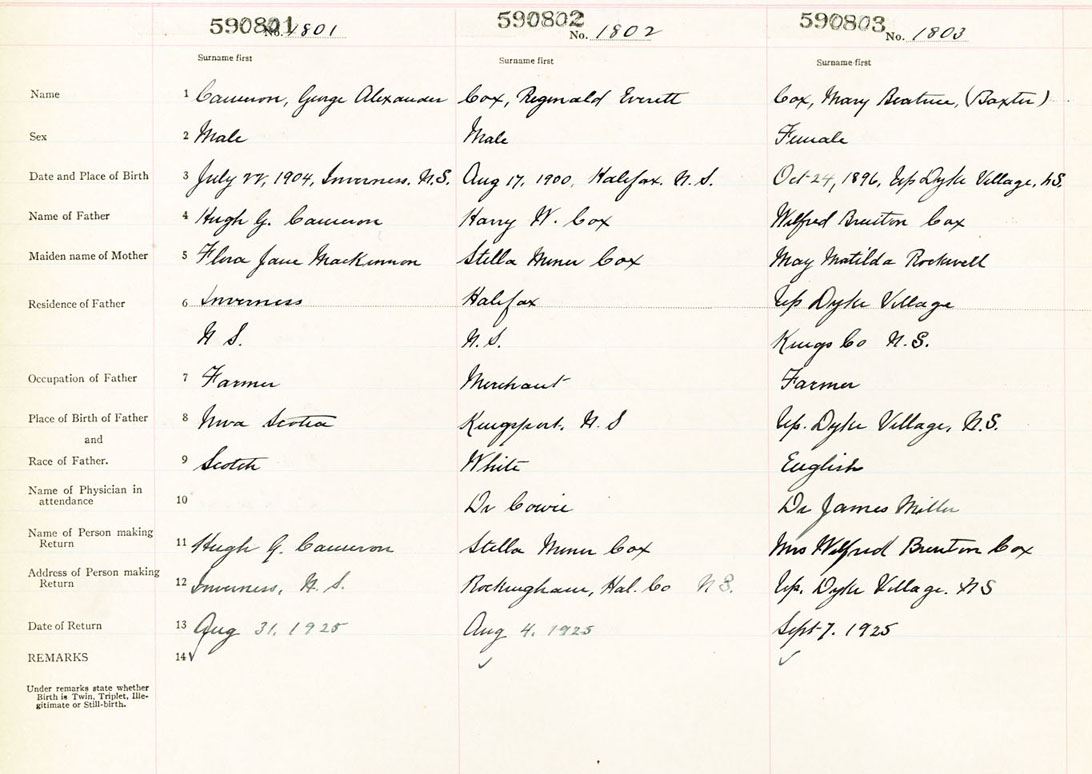 590801 590802 590803
No. 1801 No. 1802 No. 1803
Surname first Surname first Surname first
Name 1 Cameron, George Alexander Cox, Reginald Everett Cox, Mary Beatrice, (Baxter)
Sex 2 Male Male Female
Date and Place of Birth 3 July 22, 1904, Inverness. N.S. Aug 17, 1900, Halifax. N.S. Oct 24, 1896, Up Dyke Village, N.S.
Name of Father 4 Hugh G. Cameron Harry W. Cox Wilfred Cox
Maiden name of Mother 5 Flora Jane MacKinnon Stella Miner Cox May Matilda Rockwell
Residence of Father 6 Inverness Halifax Up Dyke Village
N S. N.S. Kings Co N.S.
Occupation of Father 7 Farmer Merchant Farmer
Place of Birth of Father 8 Nova Scotia Kingsport, N.S Up. Dyke Village, N.S.
and
Race of Father. 9 Scotch White English
Name of Physician in
attendance 10 Dr Cowie Dr James Miller
Name of Person making
Return 11 Hugh G. Cameron Stella Miner Cox Mrs Wilfred Cox
Address of Person making
Return 12 Inverness, N.S. Rockingham, Hal. Co N.S. Up. Dyke Village. NS
Date of Return 13 Aug 31, 1925 Aug 4, 1925 Sept 7. 1925
REMARKS 14 ✓ ✓ ✓
Under remarks state whether
Birth is Twin, Triplet, Ille-
gitimate or Still-birth.